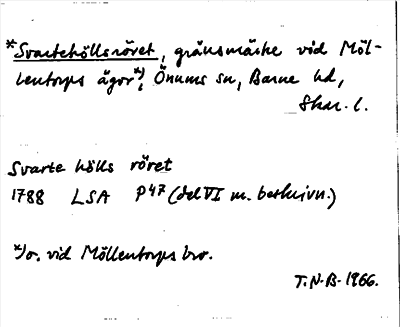 *Svartehöllsröret, gränsmärke vid Möl-
lentorps ägor*), Önums sn, Barne hd,
Skar. l.
Svarte hölls röret
1788 LSA P47 (del VI m. beskrivn.)
*)o. vid Möllentorps bro.
T.N-B- 1966.